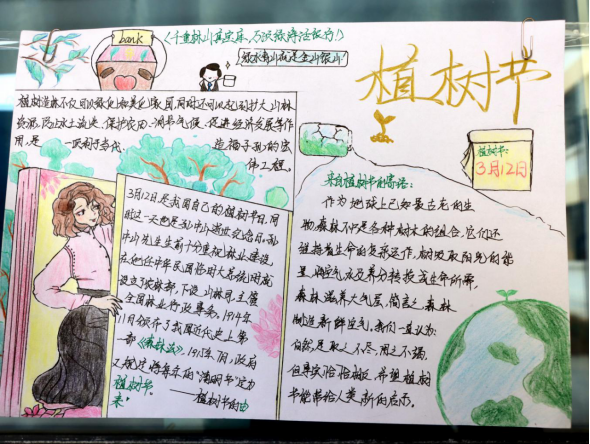 bank
(千重森林真宝库,万顷绿涛活银行!)
绿水青山就是金山银山!
植树节
植树造林不仅可以绿化和美化家园,同时还可以起到扩大山林
资源、防止水土流失、保护农田、调节气候、促进经济发展等作
用,是一项利于当代、造福子孙的宏
伟工程。
植树节:
3月12日
3月12日,是我国自己的植树节日,同
时这一天也是孙中山逝世纪念日。孙
中山先生生前十分重视林业建设。
在他任中华民国临时大总统时就
设立了农林部,下设山林司,主管
全国林业行政事务,1914年
11月颁布了我国近代史上第
一部《森林法》。1915年7月,政府
又规定将每年的“清明节”定为
植树节。
——植树节的由
来
来自植树节的寄语:
作为地球上已知最古老的生
物,森林不只是各种树木的组合,它们还
维持着生命的复杂运作,树汲取阳光的能
量,调空气、水及养分转换成生命所需,
森林滋养大气层,简言之,森林
制造新鲜空气,我们一直认为:
自然是取之不尽、用之不竭,
但事实恰恰相反,希望植树
节能带给人类新的启示。